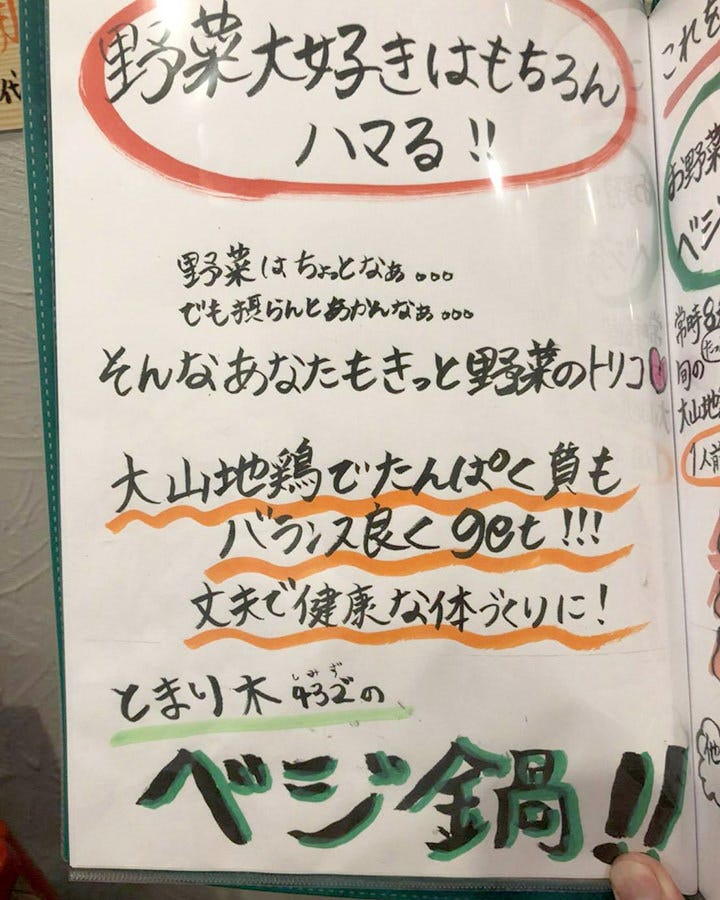 野菜大好きはもちろん
ハマる!!
野菜はちょっとなぁ...
でも摂らんとあかんなぁ...
そんなあなたもきっと野菜のトリコ
大山地鶏でたんぱく質も
バランス良くget!!!
丈夫で健康な体づくりに!
しみず
とまり木 432の
ベジ鍋!!
代
これを
お野菜
ベジ
常時8
旬の
大山地
1人前
他